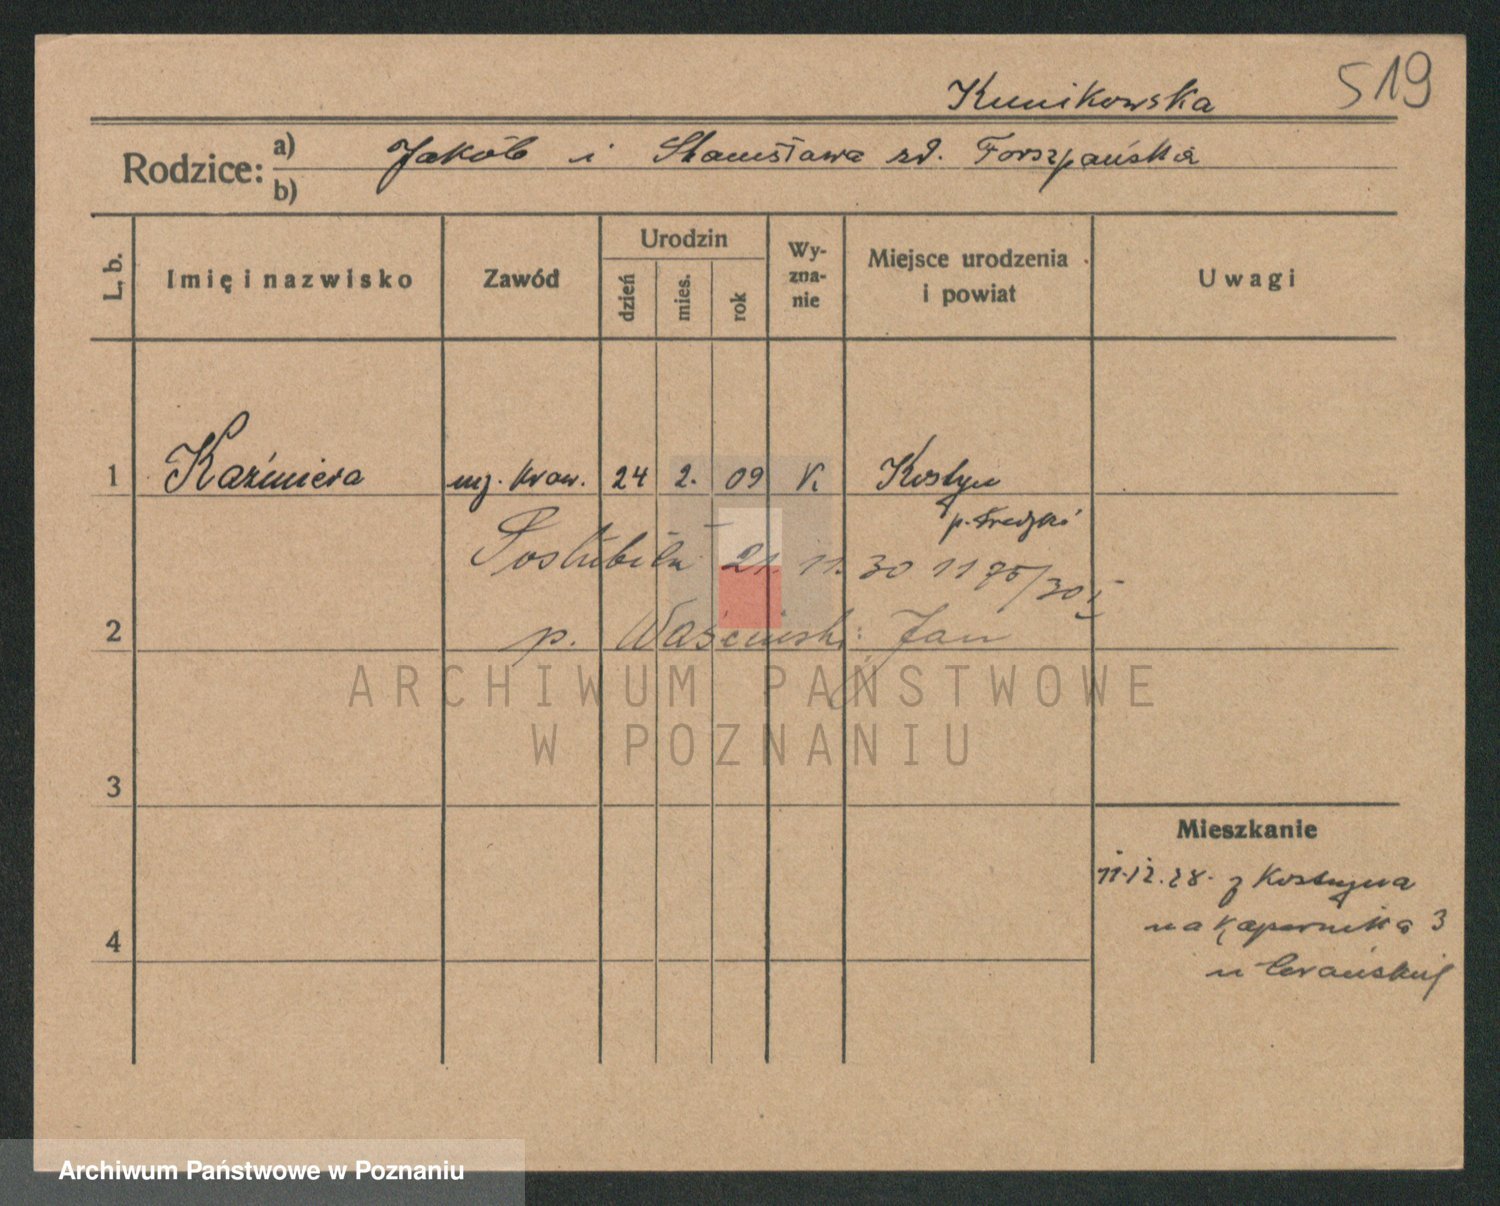 519
Kunikowska
Rodzice: a) Jakób i Stanisława zd. Forszpańska
b)
L. b. Imię i nazwisko Zawód Urodzin dzień mies. rok Wy-zna-nie Miejsce urodzenia i powiat Uwagi
1 Kaźmiera 24 2. 09 K. Kostrzyn
p. Średzki
Poślubiła 21. 11. 30 1175/30
2 p. Jan
ARCHIWUM PAŃSTWOWE
W POZNANIU
3
Mieszkanie
11.12.28. z Kostrzyna
4 na Kopernika 3
u
Archiwum Państwowe w Poznaniu